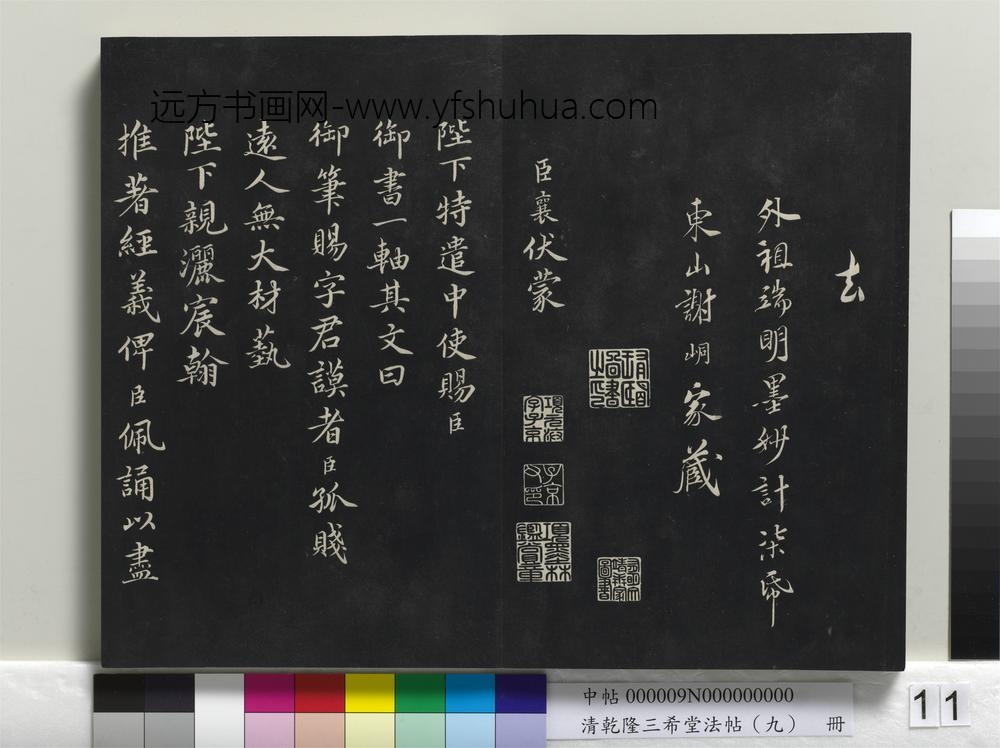 远方书画网-www.yfshuhua.com
去
外祖端明墨妙計柒㡧
東山謝峒家藏
臣襄伏蒙
陛下特遣中使賜臣
御書一軸其文曰
御筆賜字君謨者臣孤賤
遠人無大材藝
陛下親灑宸翰
推著經義俾臣佩誦以盡
項元汴
字子京
子京
父印
項墨林
鑑賞章
中帖 000009N000000000
清乾隆三希堂法帖（九） 冊
11